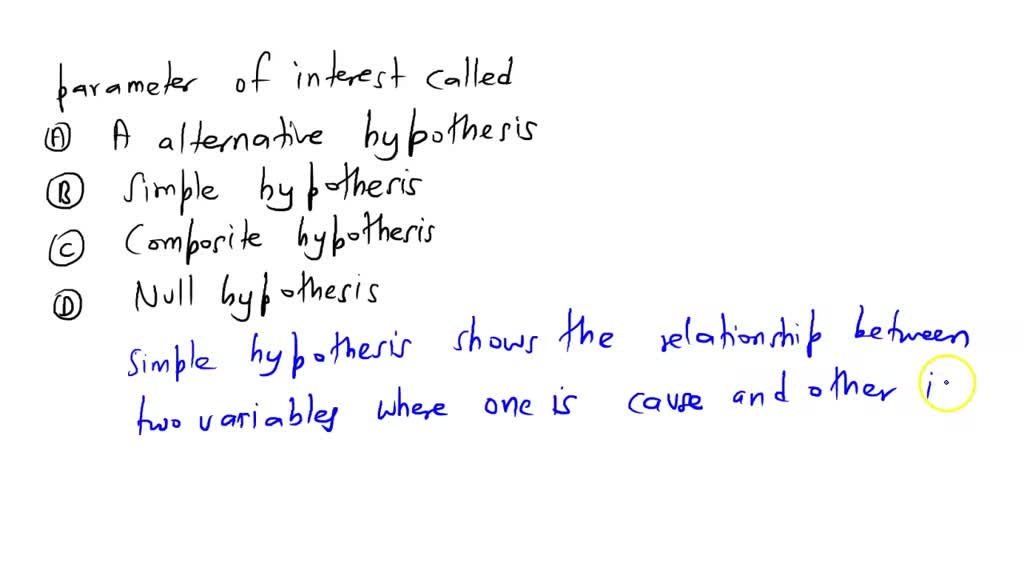 parameter of interest called
Ⓐ A alternative hypothesis
Ⓑ Simple hypothesis
Ⓒ Composite hypothesis
Ⓓ Null hypothesis
Simple hypothesis shows the relationship between
two variables where one is cause and other i